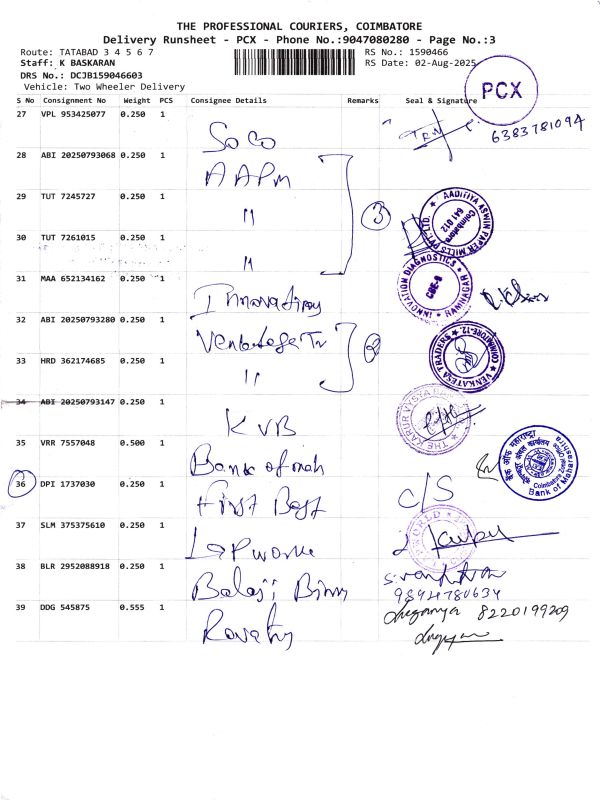 THE PROFESSIONAL COURIERS, COIMBATORE
Delivery Runsheet - PCX - Phone No.:9047080280 - Page No.:3
Route: TATABAD 3 4 5 6 7
RS No.: 1590466
Staff: K BASKARAN
RS Date: 02-Aug-2025
DRS No.: DCJB159046603
Vehicle: Two Wheeler Delivery
PCX
S No Consignment No Weight PCS Consignee Details Remarks Seal & Signature
27 VPL 953425077 0.250 1
6383781094
28 ABI 20250793068 0.250 1
AAPM
29 TUT 7245727 0.250 1
"
3
AADITIYA ASWIN PAPER MILLS PVT. LTD.
Coimbatore
641 012
30 TUT 7261015 0.250 1
"
31 MAA 652134162 0.250 1
INNOVATION DIAGNOSTICS
CBE-9
RAMNAGAR
32 ABI 20250793280 0.250 1
2
VENKATESA TRADERS
COIMBATORE-12
33 HRD 362174685 0.250 1
"
34 ABI 20250793147 0.250 1
KVB
THE KARUR VYSYA BANK
35 VRR 7557048 0.500 1
Bank of mah
बैंक ऑफ महाराष्ट्र
Coimbatore Zonal Office
Bank of Maharashtra
36 DPI 1737030 0.250 1
First Best
C/S
37 SLM 375375610 0.250 1
WORLD
38 BLR 2952088918 0.250 1
Balaji
9894780634
39 DDG 545875 0.555 1
8220199209